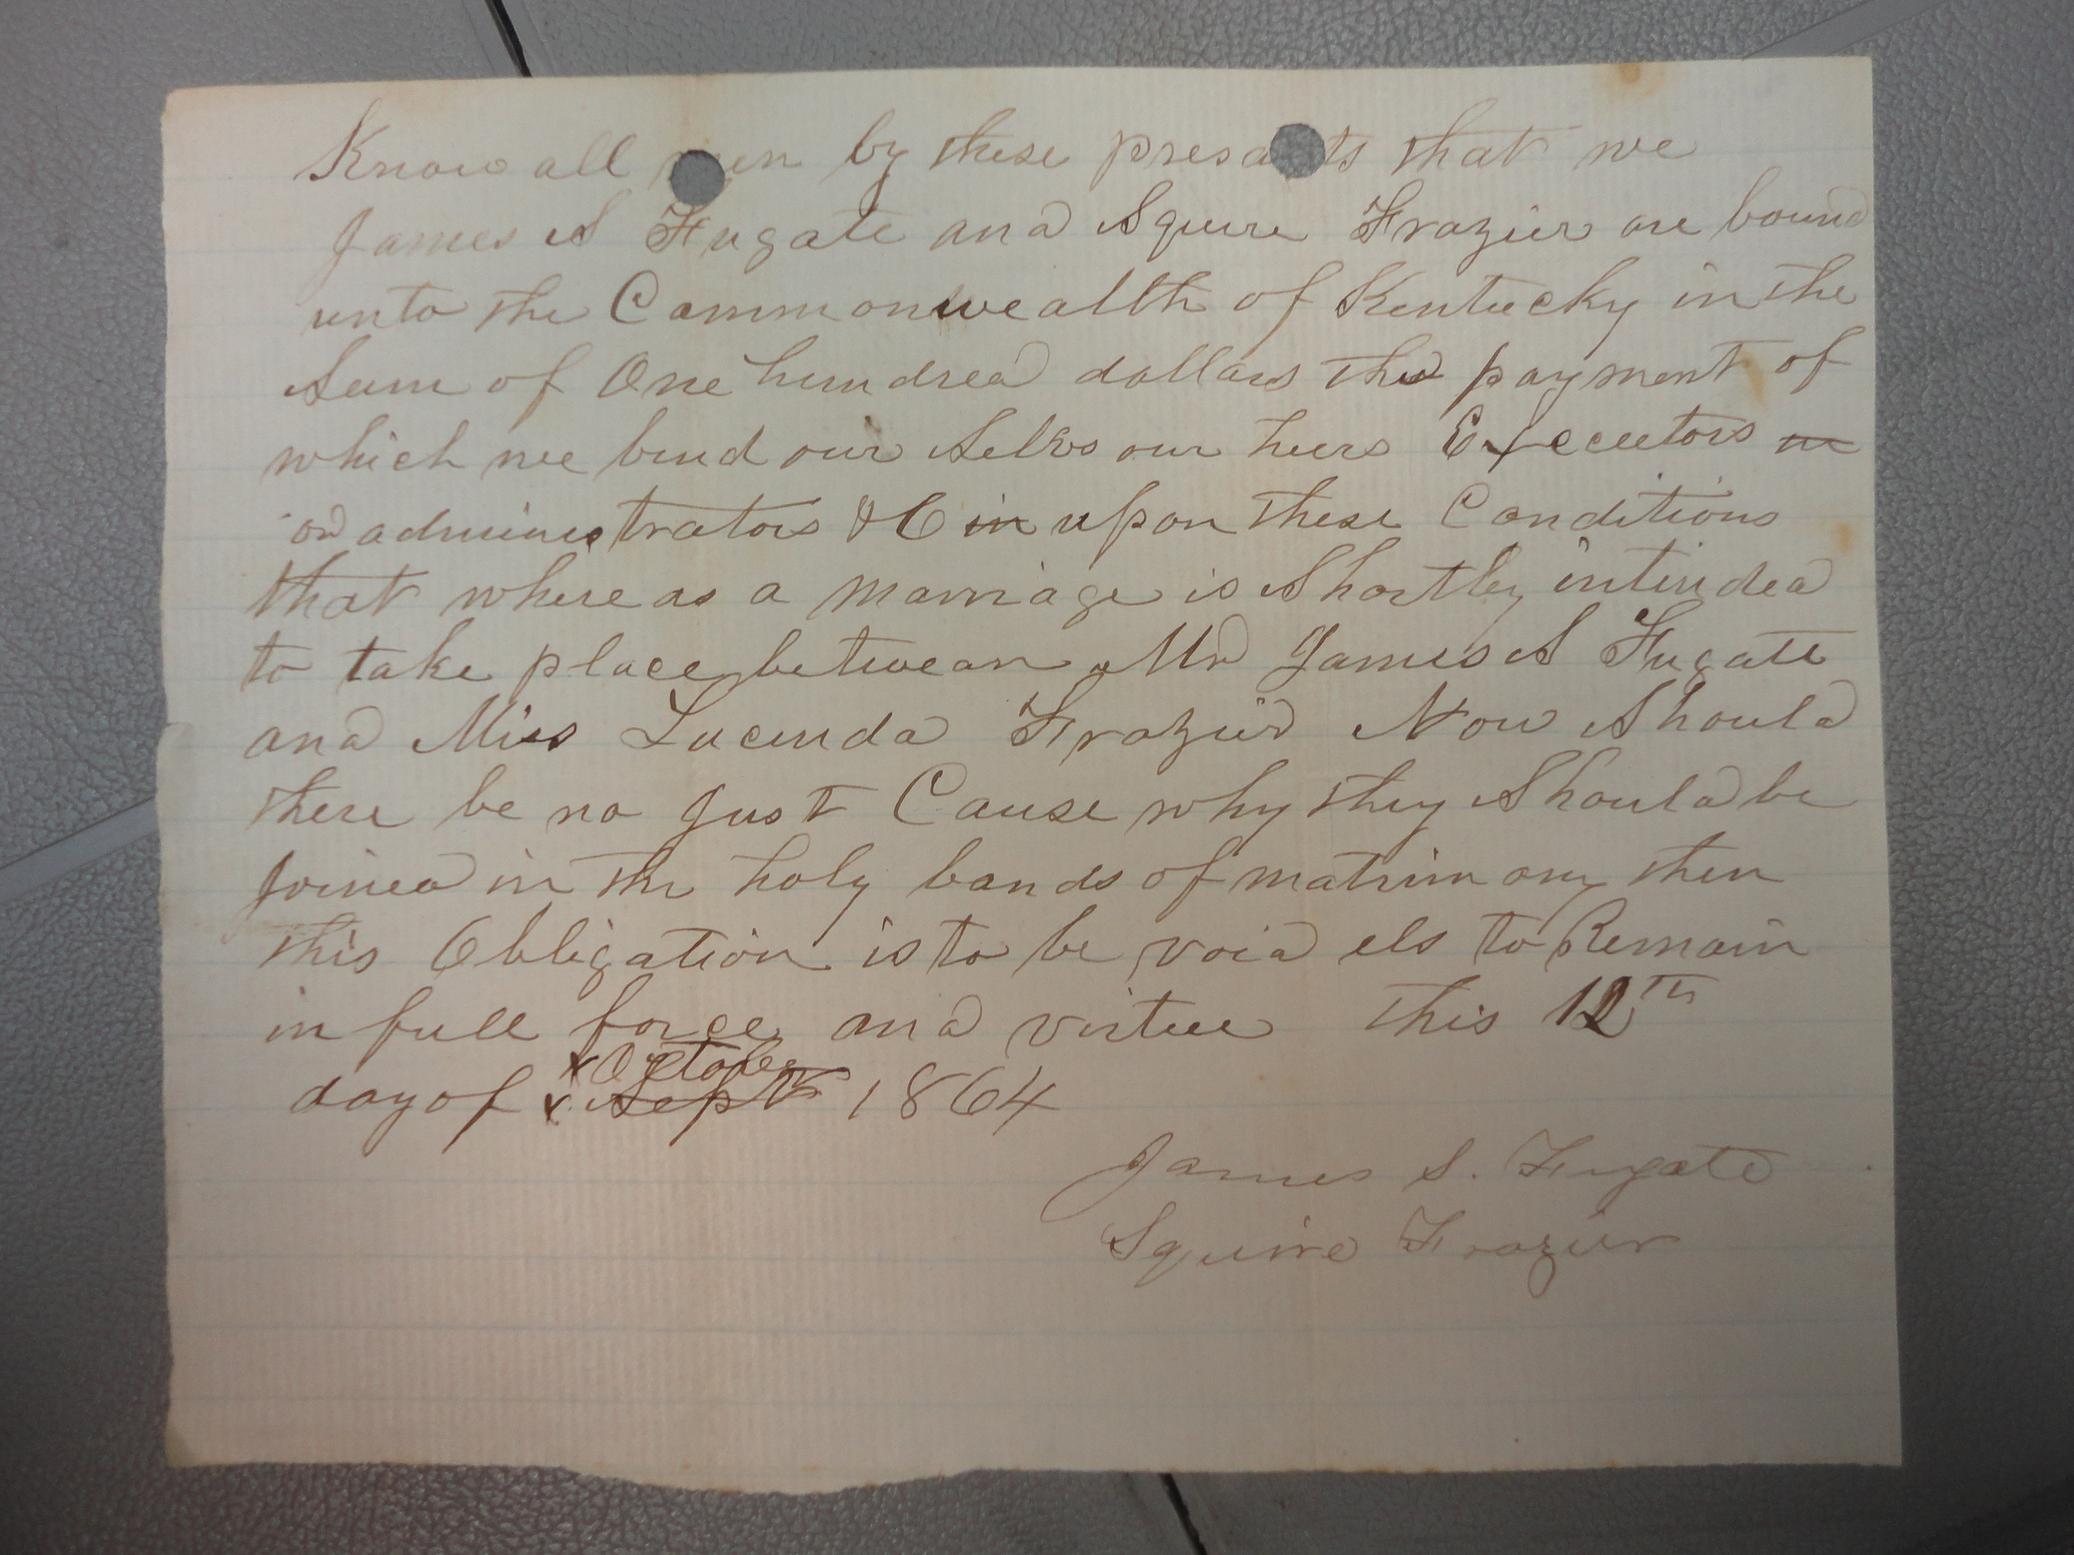 Know all men by these presants that we
James S Fugate and Squire Frazier are bound
unto the Commonwealth of Kentucky in the
Sum of One hundred dollars the payment of
which we bind our Selvs our heirs Executors in
or administrators &C in upon these Conditions
that where as a marriage is Shortly intended
to take place between Mr James S Fugate
and Miss Lucinda Frazier Now Should
there be no Just Cause why they Should be
Joined in the holy bands of matrimony then
this Obligation is to be void els to Remain
in full force and virtue this 12th
October
day of Sept 1864
James S. Fugate
Squire Frazier